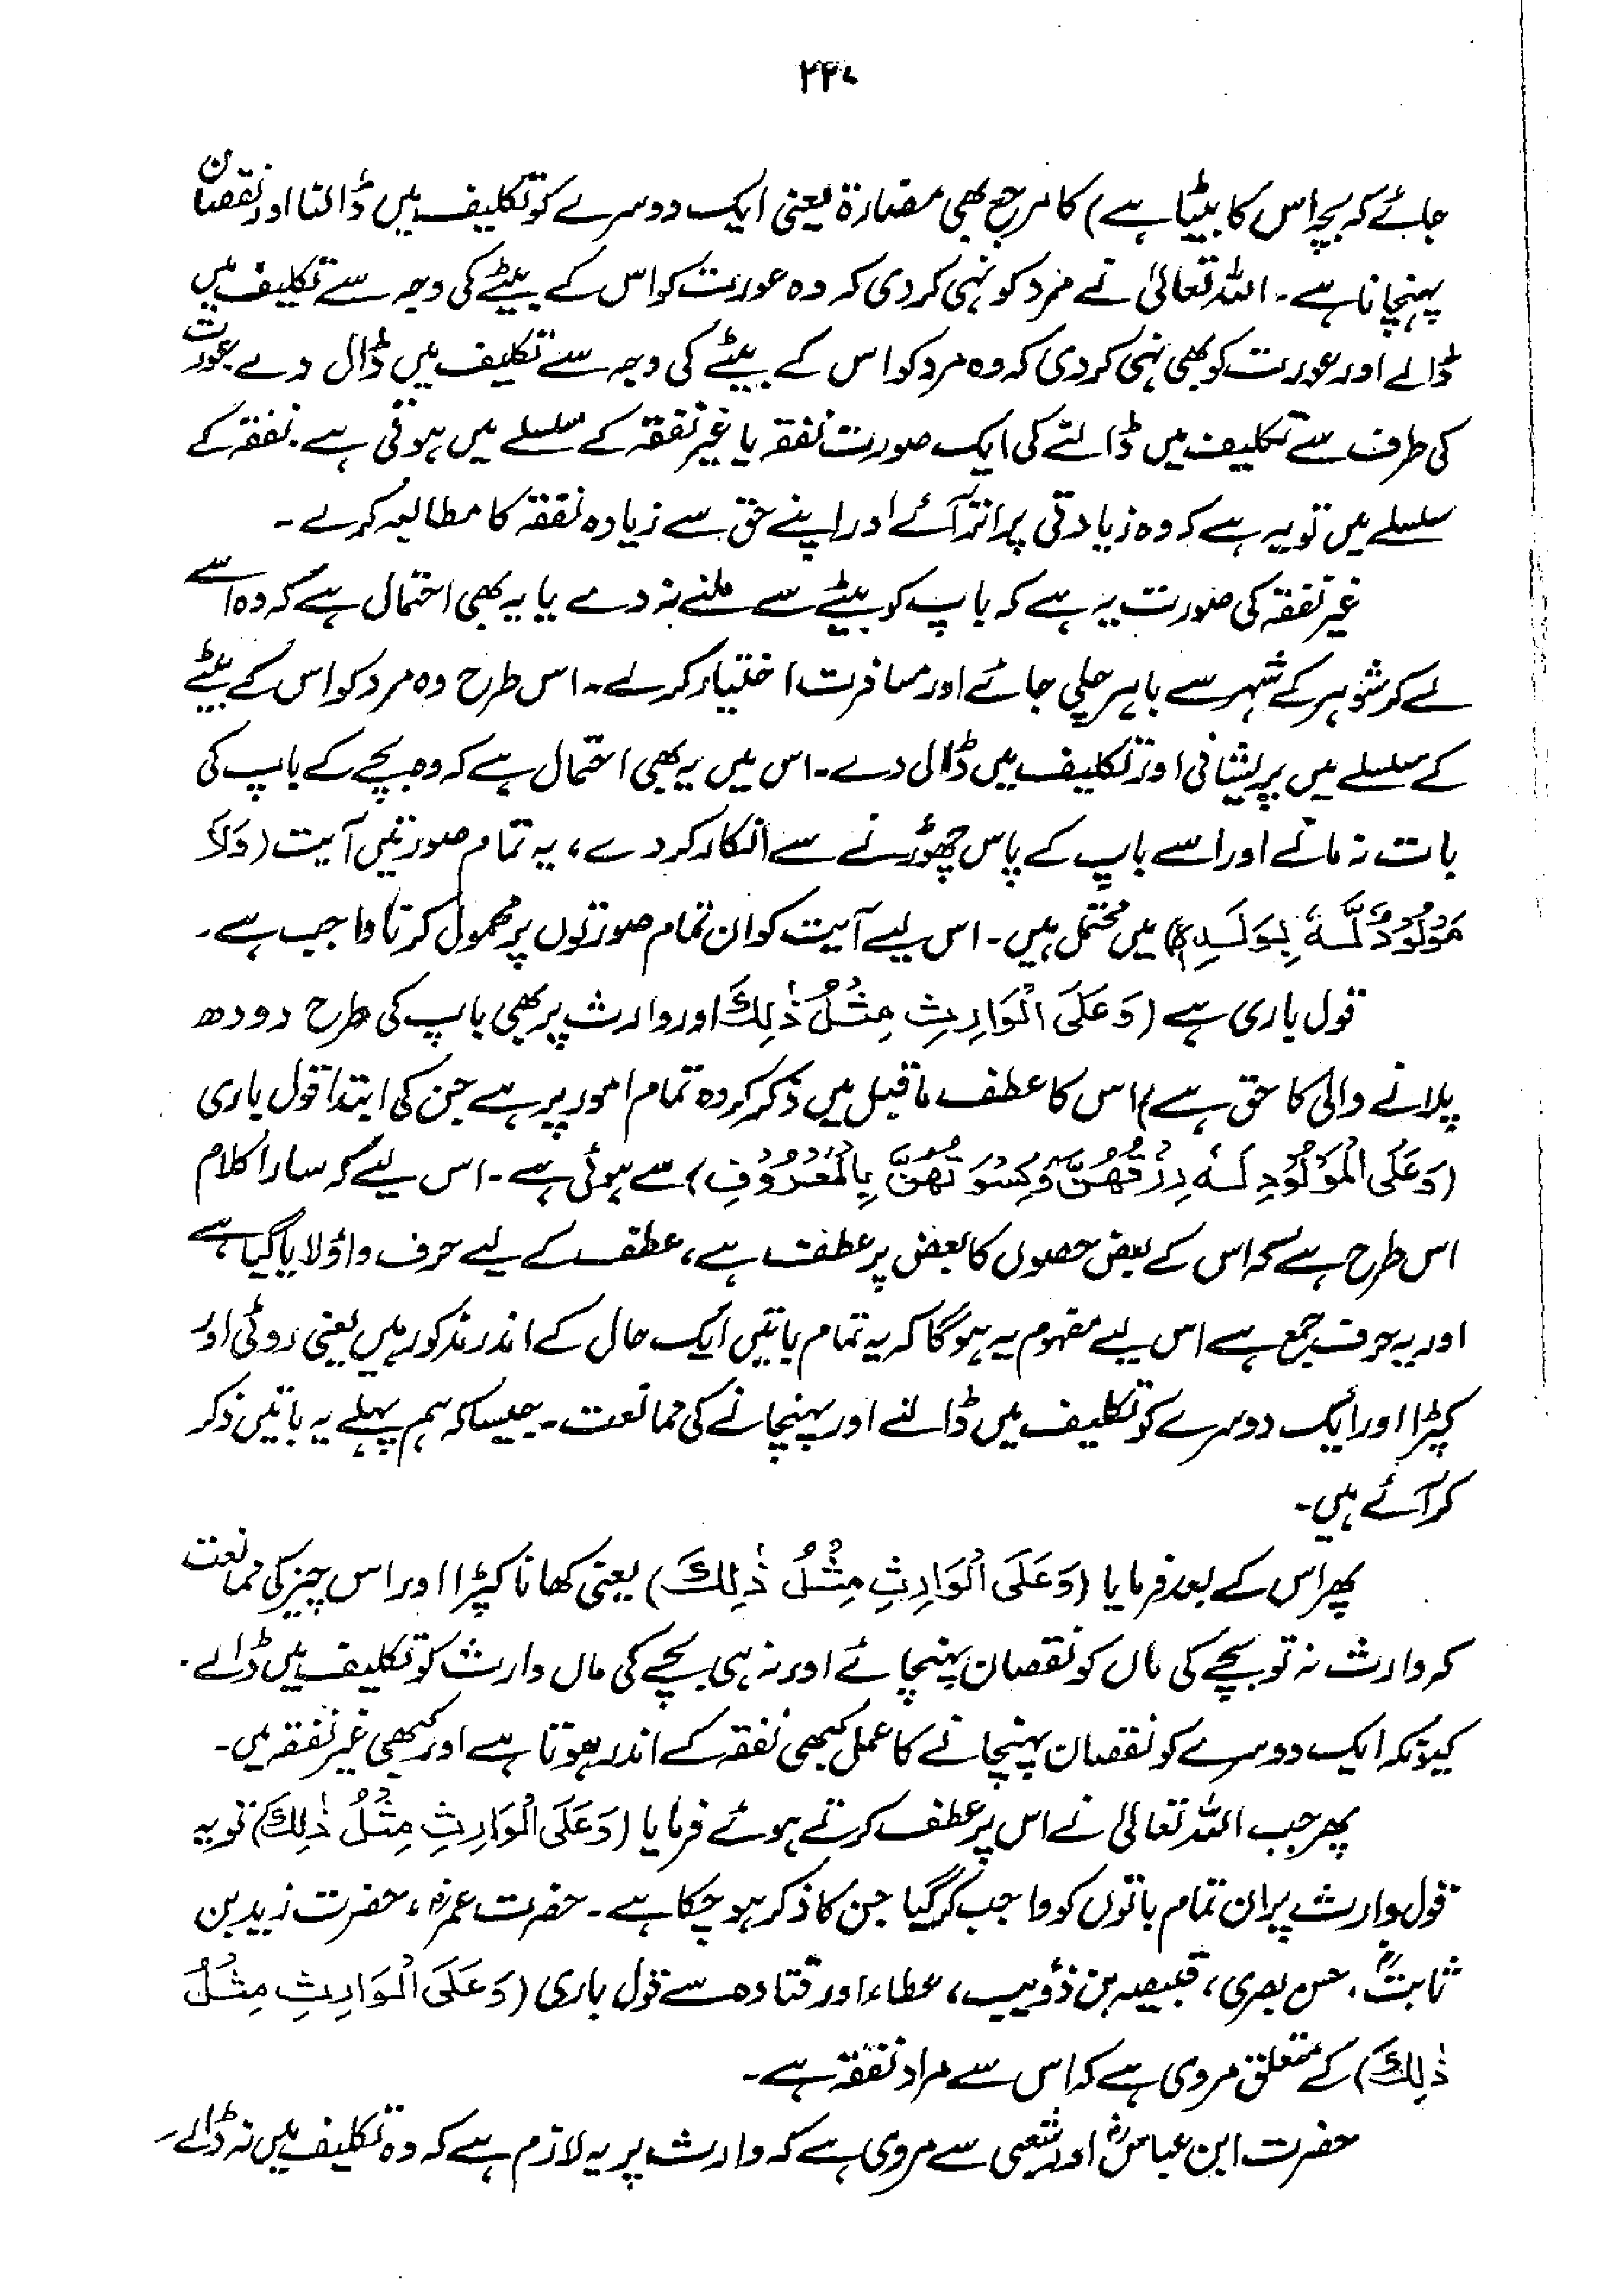 ۲۲۷
جائے کہ بچہ اس کا بیٹا ہے) کا مرجع بھی مضارۃ یعنی ایک دوسرے کو تکلیف میں ڈالنا اور نقصان
پہنچانا ہے۔ اللہ تعالیٰ نے مرد کو نہی کر دی کہ وہ عورت کو اس کے بیٹے کی وجہ سے تکلیف میں
ڈالے اور عورت کو بھی نہی کر دی کہ وہ مرد کو اس کے بیٹے کی وجہ سے تکلیف میں ڈال دے۔ عورت
کی طرف سے تکلیف میں ڈالنے کی ایک صورت نفقہ یا غیر نفقہ کے سلسلے میں ہوتی ہے۔ نفقہ کے
سلسلے میں تو یہ ہے کہ وہ زیادتی پر اتر آئے اور اپنے حق سے زیادہ نفقہ کا مطالبہ کرے۔
غیر نفقہ کی صورت یہ ہے کہ باپ کو بیٹے سے ملنے نہ دے یا یہ بھی احتمال ہے کہ وہ اسے
لے کر شوہر کے شہر سے باہر چلی جائے اور مسافرت اختیار کر لے۔ اس طرح وہ مرد کو اس کے بیٹے
کے سلسلے میں پریشانی اور تکلیف میں ڈال دے۔ اس میں یہ بھی احتمال ہے کہ وہ بچے کے باپ کی
بات نہ مانے اور اسے باپ کے پاس چھوڑنے سے انکار کر دے، یہ تمام صورتیں آیت (وَلَا
مَوْلُوْدٌ لَّهٗ بِوَلَدِهٖ) میں محتمل ہیں۔ اس لیے آیت کو ان تمام صورتوں پر محمول کرنا واجب ہے۔
قول باری ہے (وَعَلَى الْوَارِثِ مِثْلُ ذٰلِكَ اور وارث پر بھی باپ کی طرح دودھ
پلانے والی کا حق ہے) اس کا عطف ماقبل میں ذکر کردہ تمام امور پر ہے جن کی ابتدا قول باری
(وَعَلَى الْمَوْلُوْدِ لَهٗ رِزْقُهُنَّ وَكِسْوَتُهُنَّ بِالْمَعْرُوْفِ) سے ہوئی ہے۔ اس لیے کہ سارا کلام
اس طرح ہے کہ اس کے بعض حصوں کا بعض پر عطف ہے، عطف کے لیے حرف واؤ لایا گیا ہے
اور یہ حرف جمع ہے اس لیے مفہوم یہ ہو گا کہ یہ تمام باتیں ایک حال کے اندر مذکور ہیں یعنی روٹی اور
کپڑا اور ایک دوسرے کو تکلیف میں ڈالنے اور پہنچانے کی ممانعت۔ جیسا کہ ہم پہلے یہ باتیں ذکر
کر آئے ہیں۔
پھر اس کے بعد فرمایا (وَعَلَى الْوَارِثِ مِثْلُ ذٰلِكَ) یعنی کھانا کپڑا اور اس چیز کی ممانعت
کہ وارث نہ تو بچے کی ماں کو نقصان پہنچائے اور نہ ہی بچے کی ماں وارث کو تکلیف میں ڈالے۔
کیونکہ ایک دوسرے کو نقصان پہنچانے کا عمل کبھی نفقہ کے اندر ہوتا ہے اور کبھی غیر نفقہ میں۔
پھر جب اللہ تعالیٰ نے اس پر عطف کرتے ہوئے فرمایا (وَعَلَى الْوَارِثِ مِثْلُ ذٰلِكَ) تو یہ
قول وارث پر ان تمام باتوں کو واجب کر گیا جن کا ذکر ہو چکا ہے۔ حضرت عمرؓ، حضرت زید بن
ثابتؓ، حسن بصری، قبیصہ بن ذؤیب، عطاء اور قتادہ سے قول باری (وَعَلَى الْوَارِثِ مِثْلُ
ذٰلِكَ) کے متعلق مروی ہے کہ اس سے مراد نفقہ ہے۔
حضرت ابن عباسؓ اور شعبی سے مروی ہے کہ وارث پر یہ لازم ہے کہ وہ تکلیف میں نہ ڈالے۔